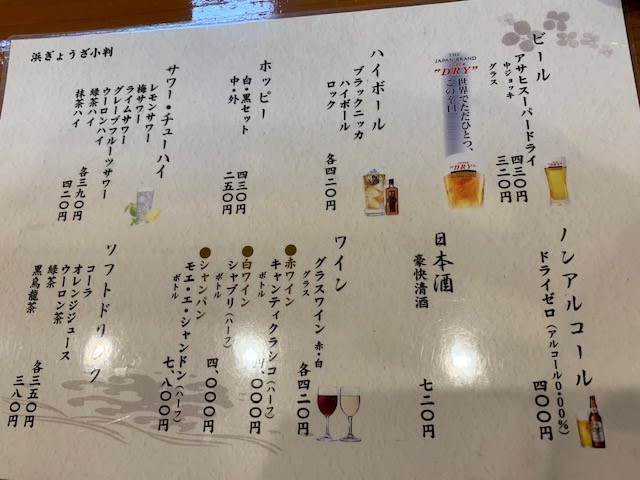 浜ぎょうざ小判
ビール
アサヒスーパードライ
中ジョッキ 四三〇円
グラス 三二〇円
THE JAPAN BRAND
"DRY"
世界でただひとつ、
この辛口。
"DRY"
ハイボール
ブラックニッカ
ハイボール
ロック
各四二〇円
ホッピー
白・黒セット 四三〇円
中・外 二五〇円
サワー・チューハイ
レモンサワー
梅サワー
ライムサワー
グレープフルーツサワー
ウーロンハイ
緑茶ハイ 各三九〇円
抹茶ハイ 四二〇円
ノンアルコール
ドライゼロ(アルコール0.00%)
四〇〇円
日本酒
豪快清酒 七二〇円
ワイン
グラスワイン 赤・白
グラス 各四二〇円
●赤ワイン
キャンティクラシコ(ハーフ)
ボトル 四、〇〇〇円
●白ワイン
シャブリ(ハーフ)
ボトル 四、〇〇〇円
●シャンパン
モエ・エ・シャンドン(ハーフ)
ボトル 七、八〇〇円
ソフトドリンク
コーラ
オレンジジュース
ウーロン茶
緑茶 各三五〇円
黒烏龍茶 三八〇円